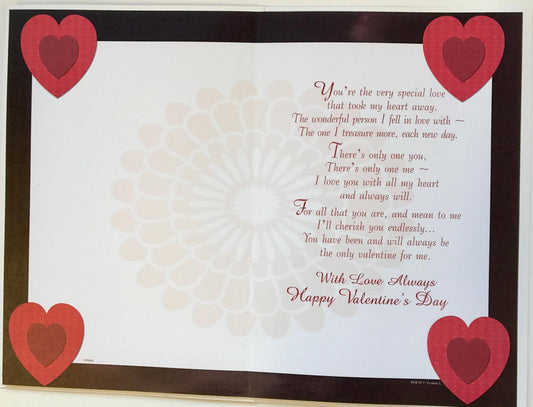 You're the very special love
that took my heart away.
The wonderful person I fell in love with ~
The one I treasure more, each new day.
There's only one you,
There's only one me ~
I love you with all my heart
and always will.
For all that you are, and mean to me
I'll cherish you endlessly...
You have been and will always be
the only valentine for me.
With Love Always
Happy Valentine's Day